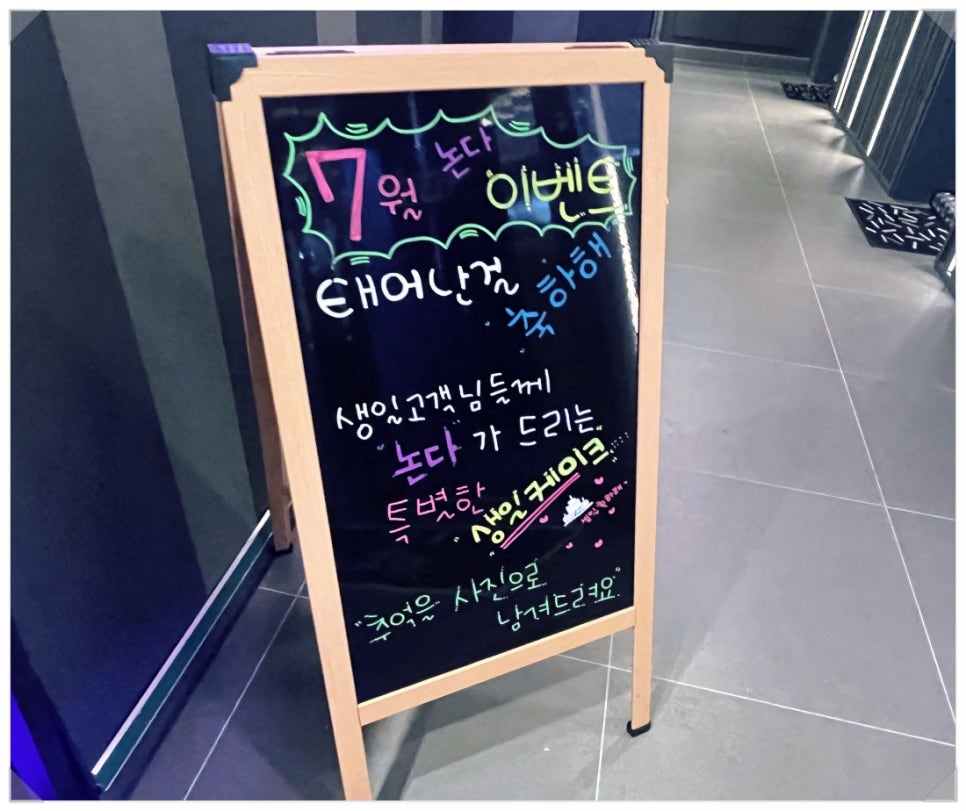 7월 논다 이벤트
태어난걸
축하해
생일고객님들께
"논다"가 드리는
특별한 "생일케이크"
생일축하해
"추억을 사진으로
남겨드려요"